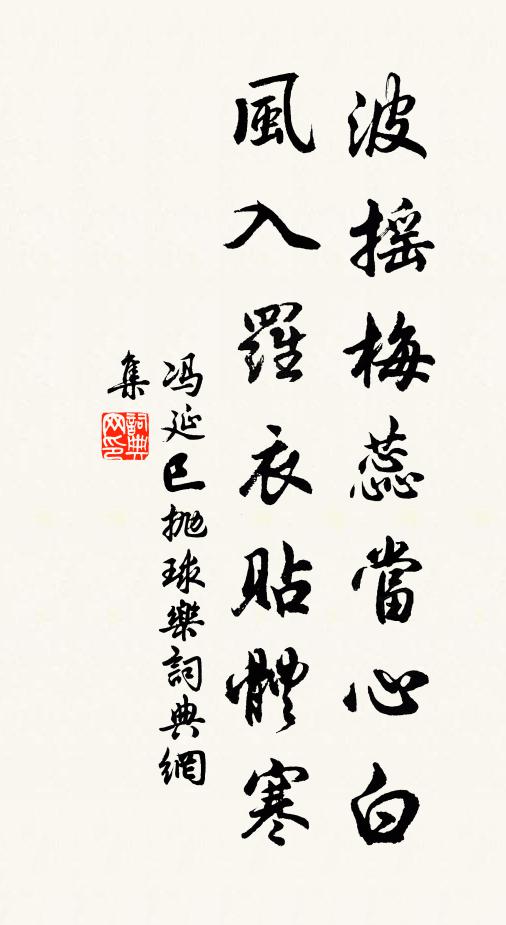 波摇梅蕊當心白
風入羅衣貼體寒
冯延巳抛球樂詞典網
集
詞典网印